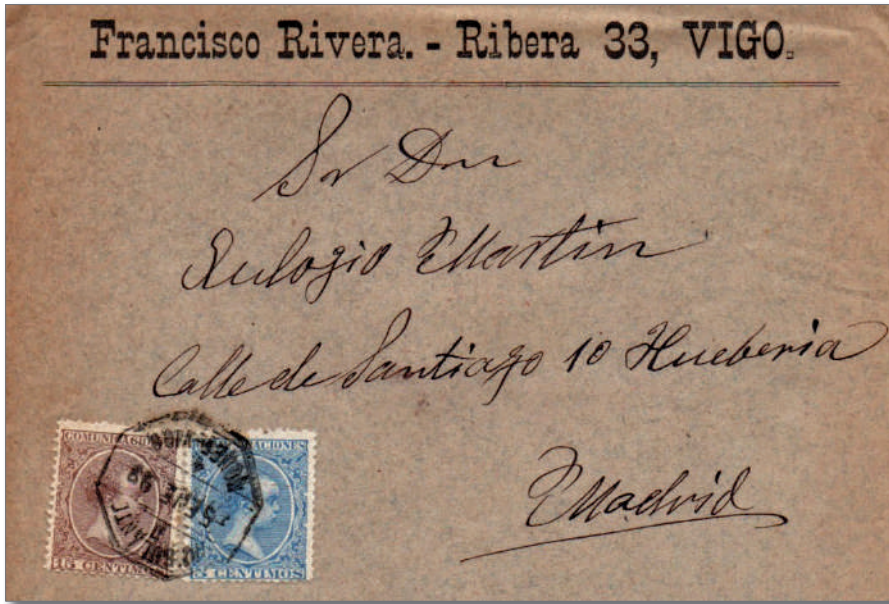 Francisco Rivera. - Ribera 33, VIGO.
Sr Don
Eulogio Martin
Calle de Santiago 10 Hueberia
Madrid
COMUNICACIONES
15 CENTIMOS
5 CENTIMOS
5 ENE 99